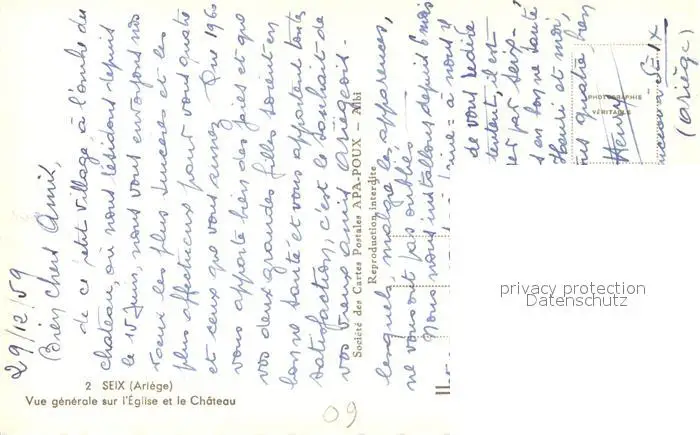 29/12/59
Bien chers Amis,
de ce petit village à l'ombre du
chateau, où nous résidons depuis
le 15 Juin, nous vous envoyons nos
voeux les plus sincères et les
plus affectueux pour vous quatre
et ceux que vous aimez. Que 1960
vous apporte bien des joies et que
vos deux grandes filles soient en
bonne santé et vous apportent toute
satisfaction, c'est le souhait de
vos vieux amis ariégeois.
Société des Cartes Postales APA-POUX - Albi
Reproduction interdite
lesquels, malgré les apparences,
ne vous ont pas oubliés.
Nous nous installons depuis 6 mois
à nous
de vous redire
il est
par Seix
en bonne santé
Henri et moi,
quatre bien
PHOTOGRAPHIE
VÉRITABLE
Henry
Seix
(Ariège)
2 SEIX (Ariège)
Vue générale sur l'Église et le Château
09
privacy protection
Datenschutz